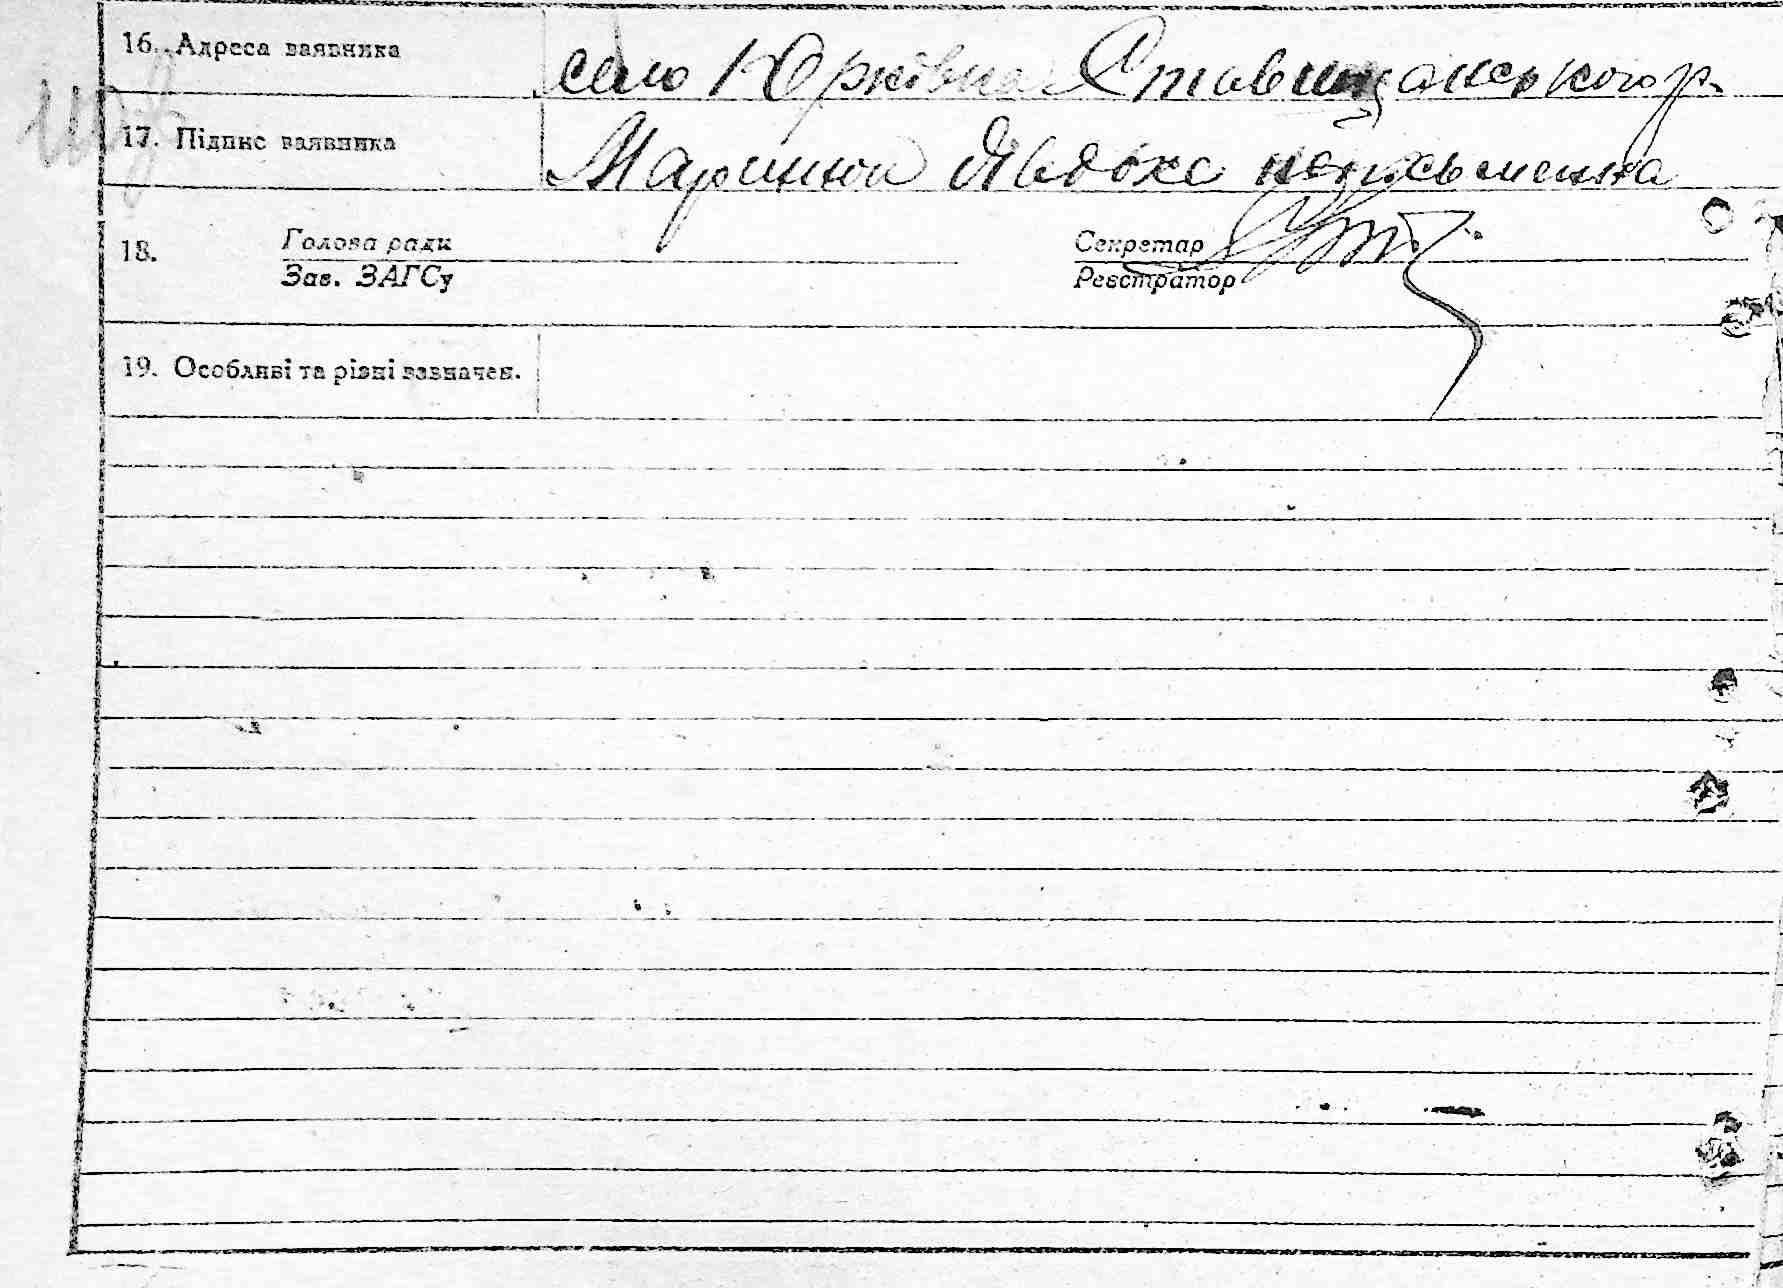 16. Адреса заявника село Юрківка Ставищанського р.
17. Підпис заявника Маринюк Явдоха неписьменна
18. Голова ради Секретар
Зав. ЗАГСу Реєстратор
19. Особливі та різні зазначен.